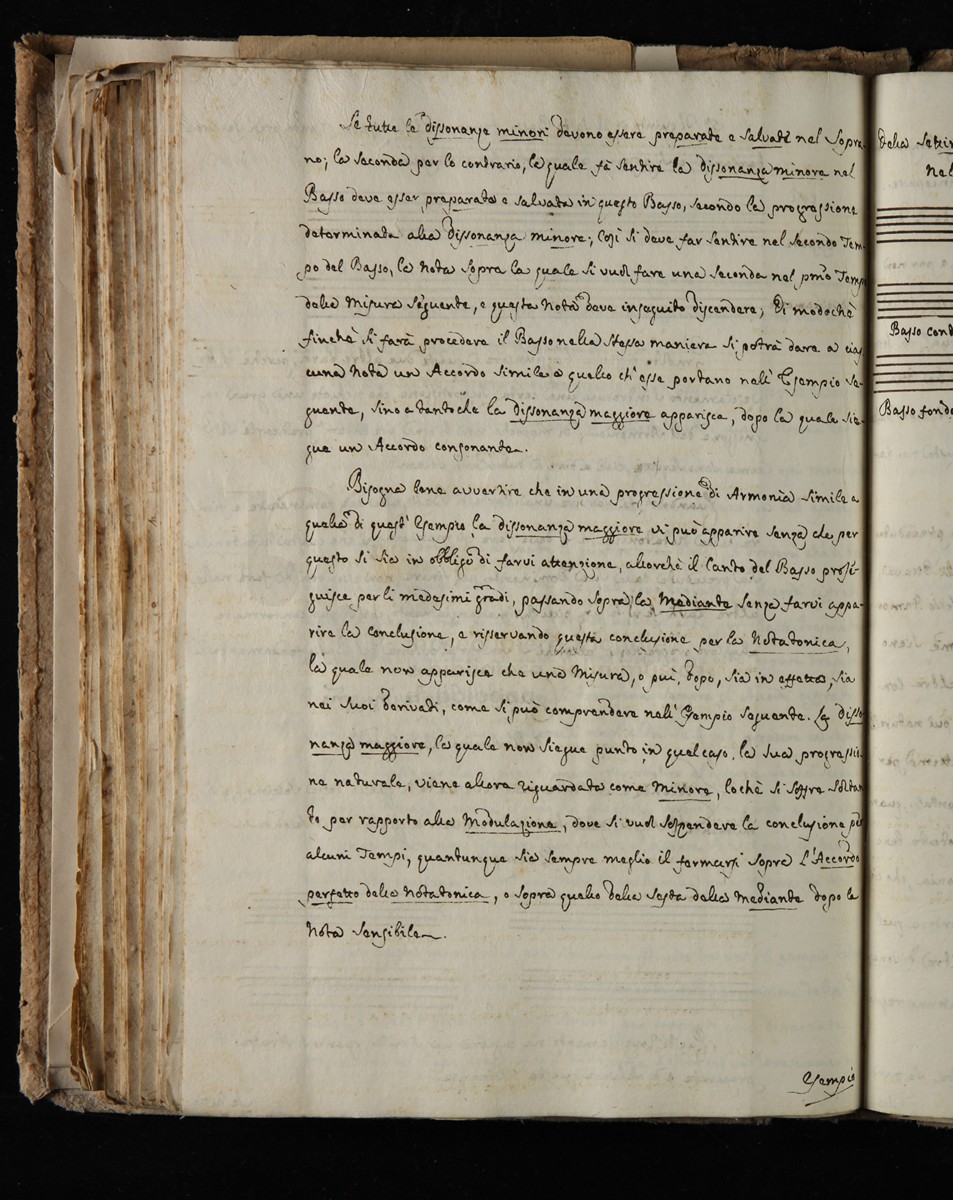 Se tutte le dissonanze minori devono essere preparate e salvate nel Sopra-
no; la seconda per lo contrario, la quale fà sentire la dissonanza minore nel
Basso deve esser preparata e salvata in questo Basso, secondo la progressione
determinata alla dissonanza minore; Così si deve far sentire nel secondo Tem-
po del Basso, la Nota sopra la quale si vuol fare una seconda nel pmo Tempo
della Misura seguente, e questa Nota deve in seguito discendere; Di modochè
finchè si farà procedere il Basso nella stessa maniera si potrà dare a cias-
cuna Nota un Accordo simile a quello ch'esse portano nell' Esempio se-
guente, sino a tanto che la dissonanza maggiore apparisca, dopo la quale sie-
gue un Accordo consonante.
Bisogna bene avvertire che in una progressione di Armonia simile a
quella di quest' Esempio la dissonanza maggiore vi può apparire senza che per
questo si sia in obbligo di farvi attenzione, allorchè il Canto del Basso prosi-
guisce per li medesimi gradi, passando sopra la Mediante senza farvi appa-
rire la conclusione, e risservando questa conclusione per la Notatonica,
la quale non apparisce che una Misura, o più, dopo, sia in effetto, sia
nei suoi derivati, come si può comprendere nell' Esempio seguente. La disso-
nanza maggiore, la quale non siegue punto in quel caso, la sua progressio-
ne naturale, viene allora riguardata come Minore, lochè si soffre soltan-
to per rapporto alla Modulazione, dove si vuol sospendere la conclusione per
alcuni Tempi, quantunque sia sempre meglio il fermarsi sopra l'Accordo
perfetto della Notatonica, o sopra quello della Sesta della Mediante dopo la
Nota sensibile.
Esempio
della
Nel
Basso cont
Basso fond